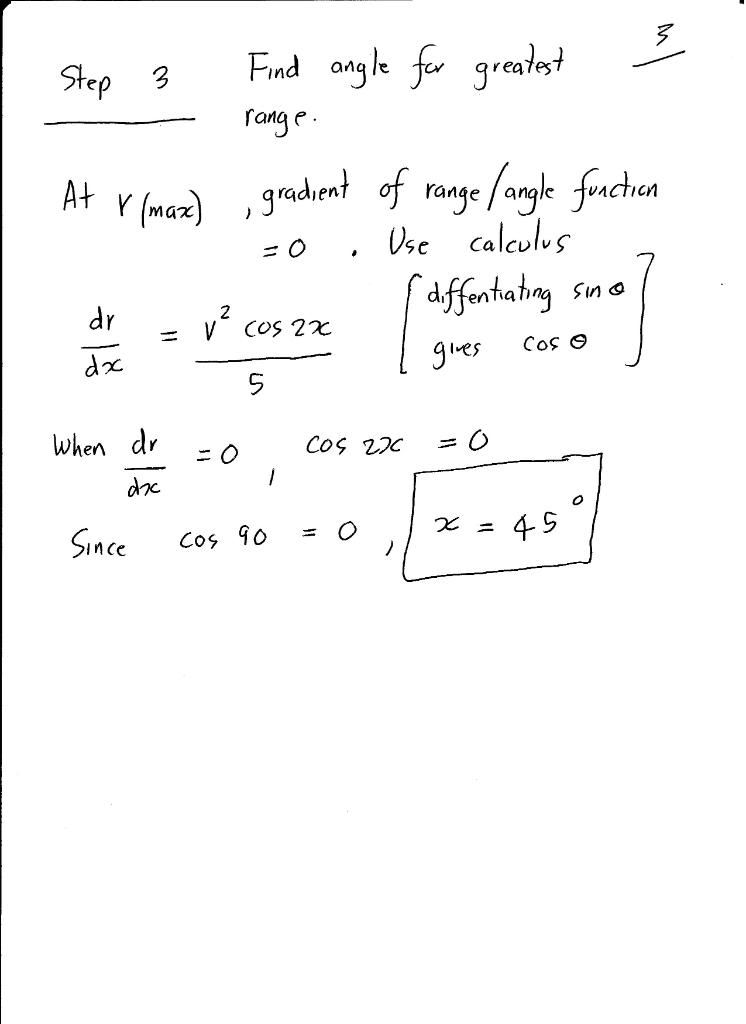 3
Step 3 Find angle for greatest
range.
At r (max), gradient of range/angle function
= 0 . Use calculus
dr/dx = v² cos 2x / 5 [diffentiating sin θ
gives cos θ]
When dr/dx = 0, cos 2x = 0
Since cos 90 = 0, x = 45°